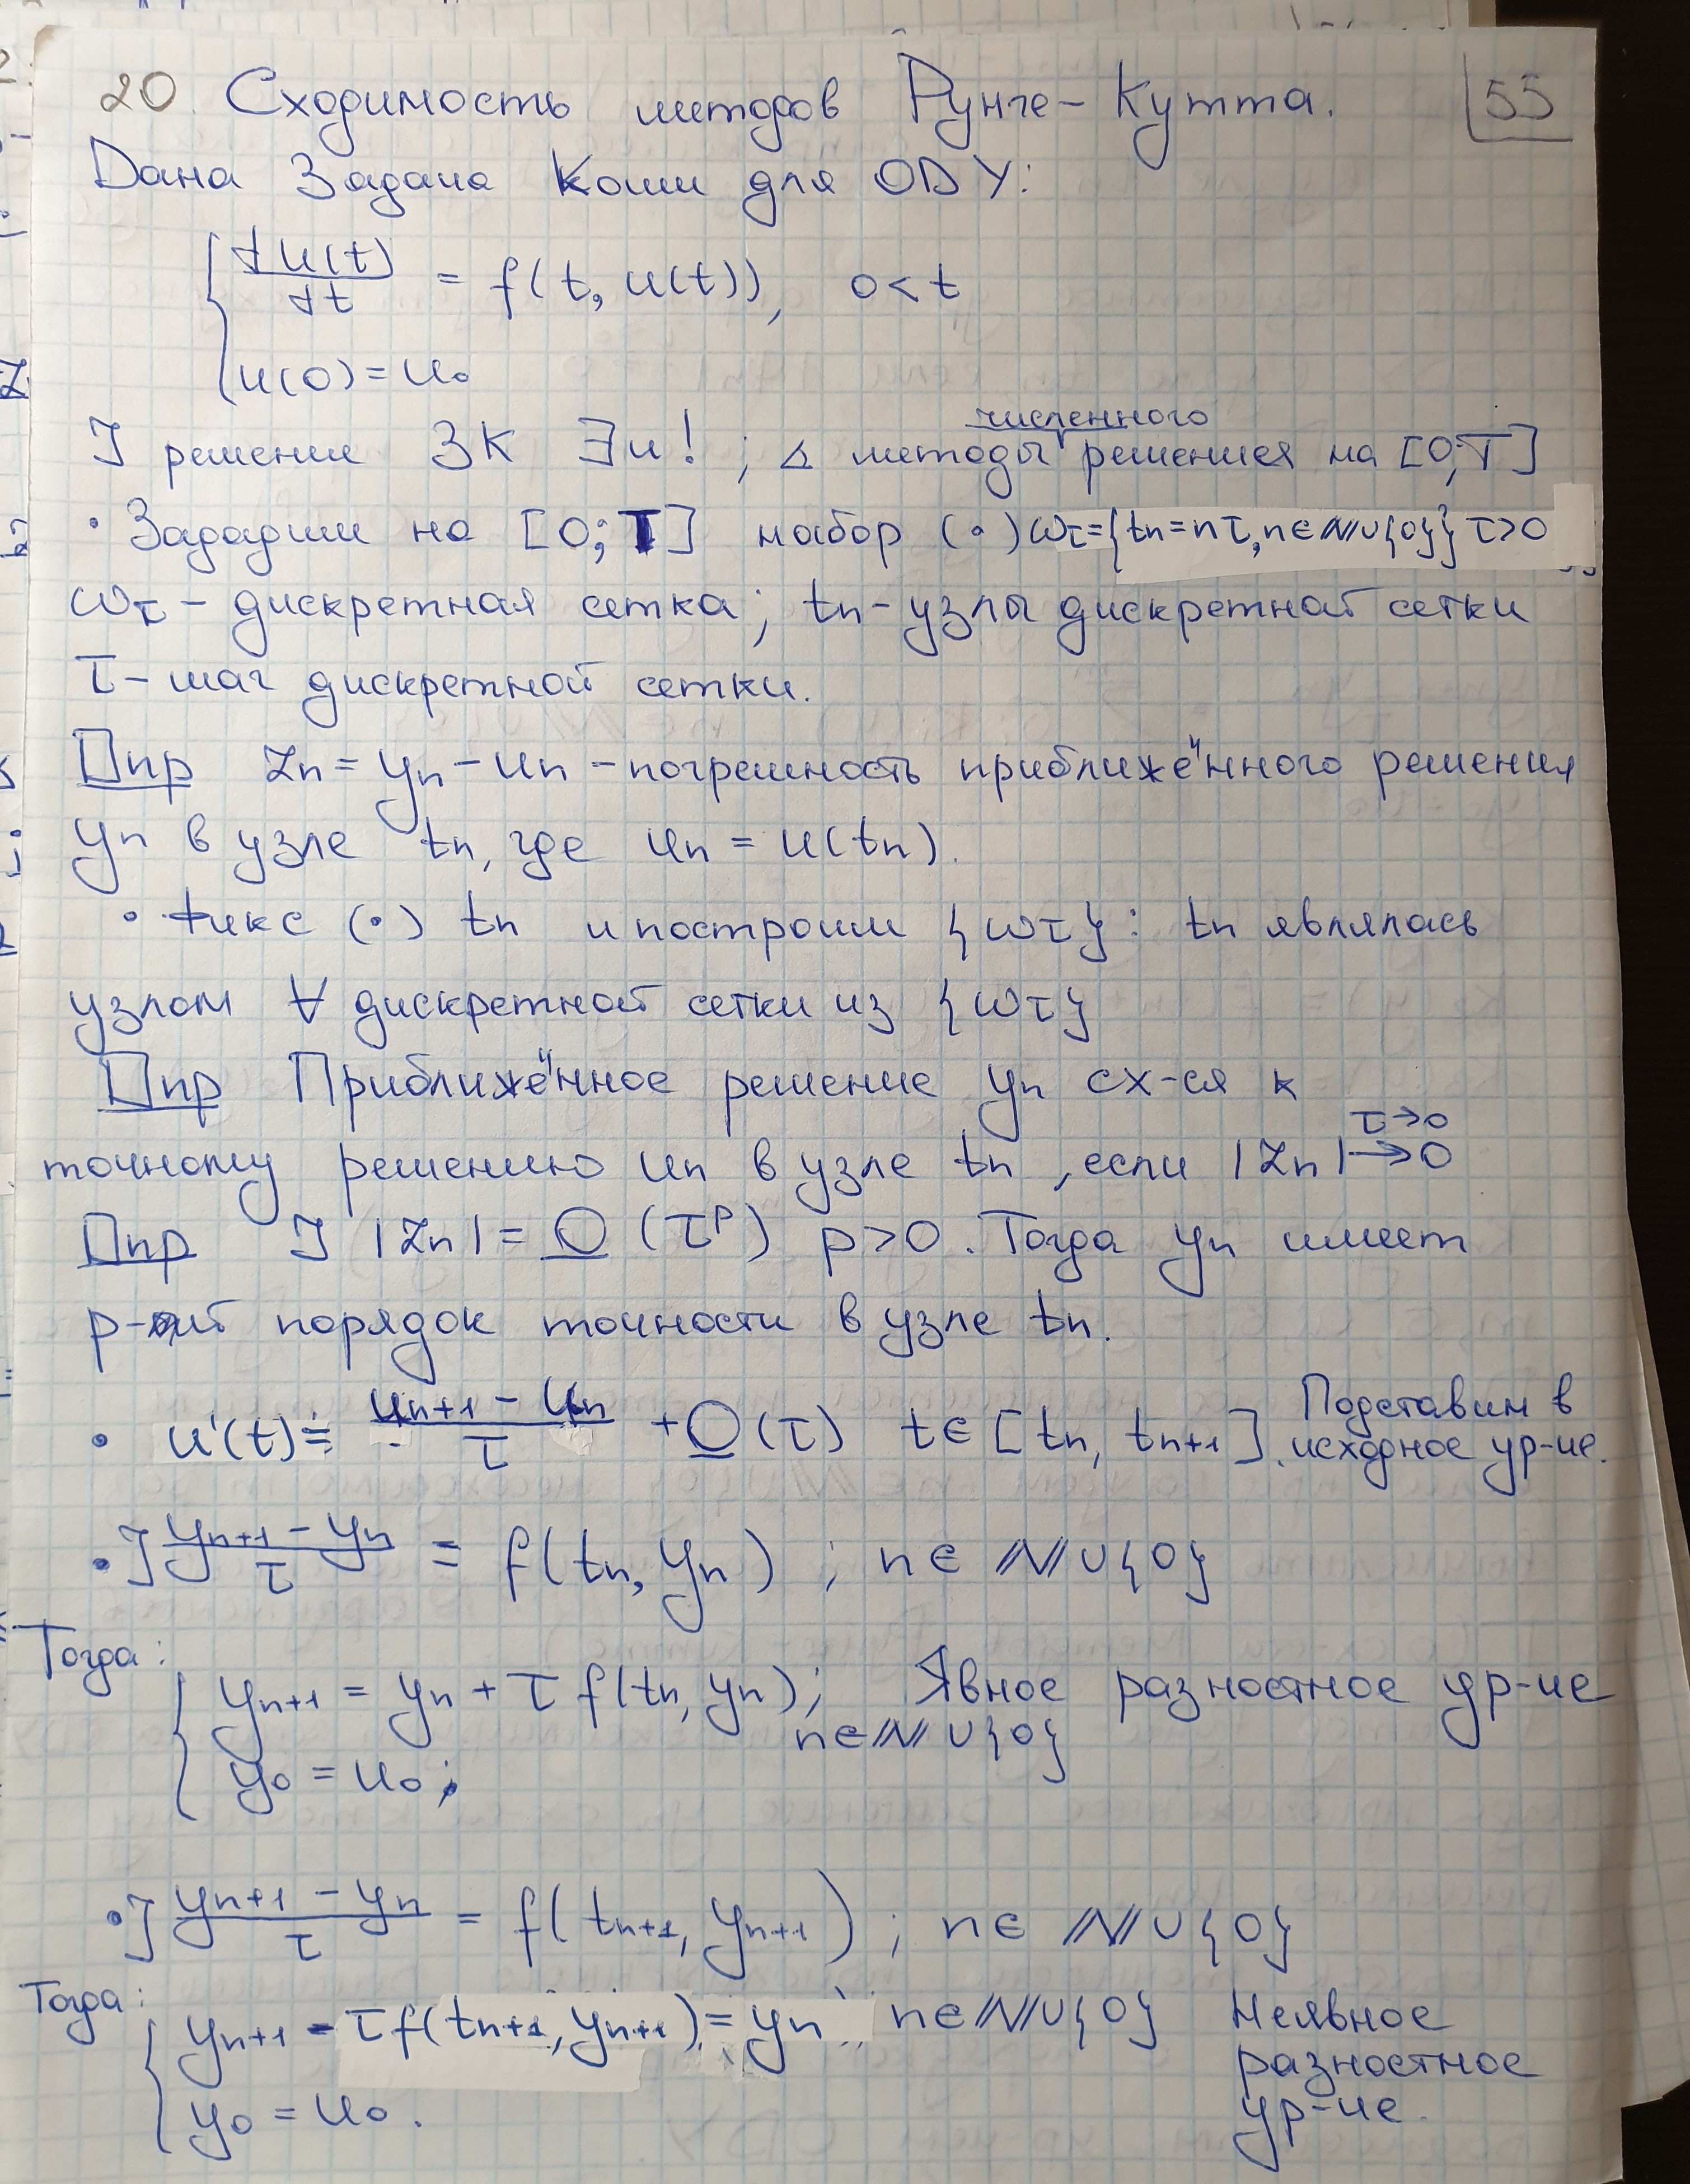 20. Сходимость методов Рунге-Кутта. 55
Дана Задача Коши для ОДУ:
{ du(t)/dt = f(t, u(t)), 0<t
u(0)=u₀
] решение ЗК ∃ и ! ; △ методы численного решения на [0;T]
• Зададим на [0;T] набор (•) ωτ={tn=nτ, n∈ℕ∪{0}} τ>0
ωτ – дискретная сетка; tn – узлы дискретной сетки
τ – шаг дискретной сетки.
Опр Zn = yn – un – погрешность приближённого решения
yn в узле tn, где un = u(tn).
• Фикс (•) tn и построим {ωτ}: tn являлась
узлом ∀ дискретной сетки из {ωτ}
Опр Приближённое решение yn сх-ся к
точному решению un в узле tn, если |Zn| →0 τ→0
Опр ] |Zn| = O(τᵖ) p>0. Тогда yn имеет
p-ый порядок точности в узле tn.
• u'(t) = (un+1 – un)/τ + O(τ) t∈[tn, tn+1]. Подставим в
исходное ур-ие.
• ] (yn+1 – yn)/τ = f(tn, yn) ; n∈ℕ∪{0}
Тогда:
{ yn+1 = yn + τ f(tn, yn); Явное разностное ур-ие
n∈ℕ∪{0}
y₀ = u₀;
• ] (yn+1 – yn)/τ = f(tn+1, yn+1) ; n∈ℕ∪{0}
Тогда:
{ yn+1 – τf(tn+1, yn+1) = yn n∈ℕ∪{0} Неявное
разностное
ур-ие.
y₀ = u₀.